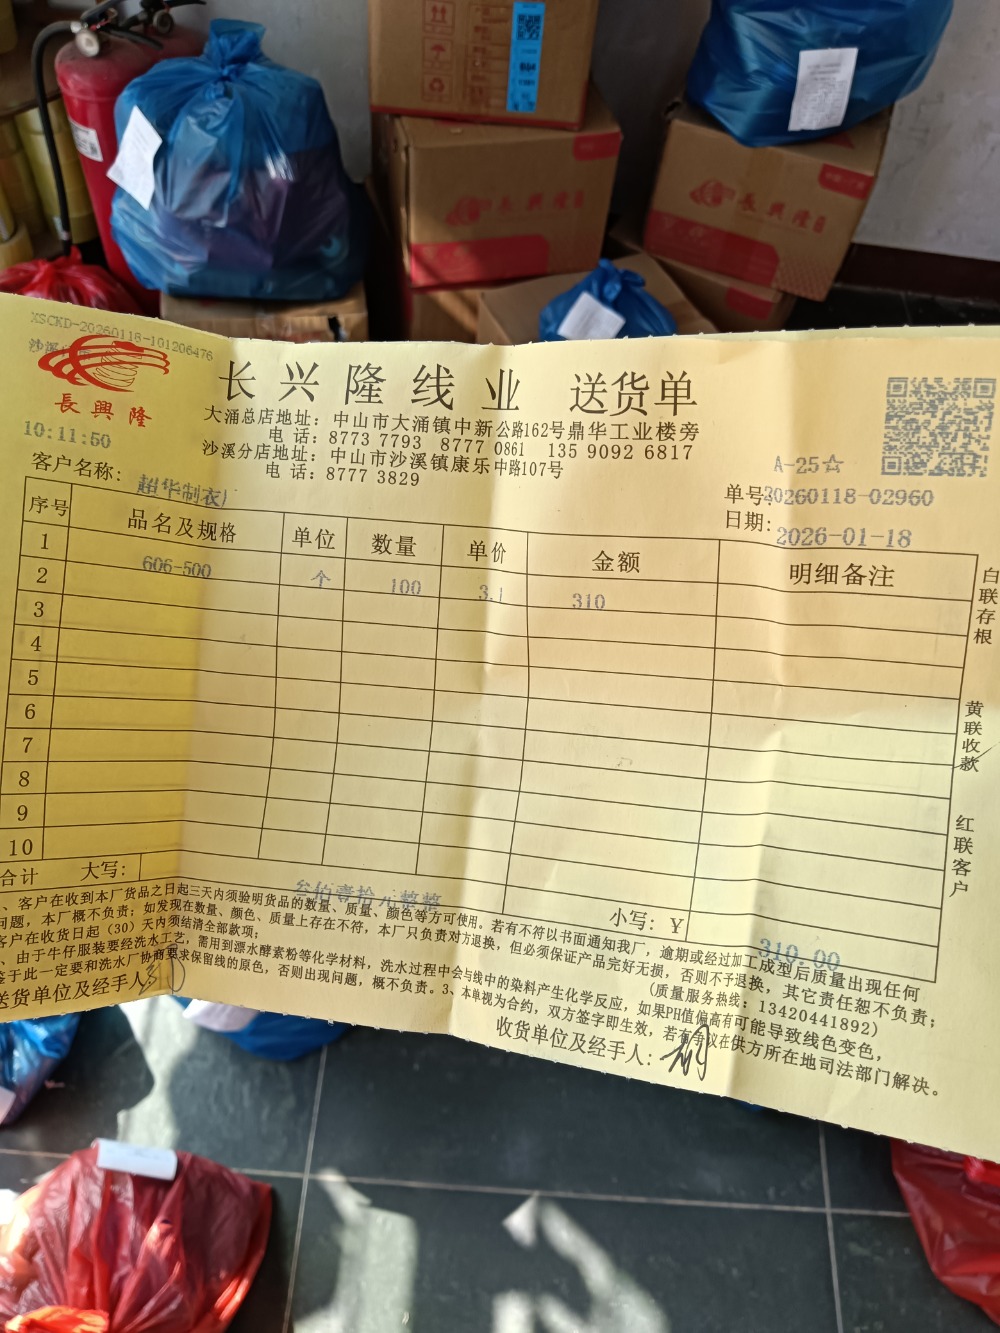 長興隆
長興隆
XSCKD-20260118-101206476
長興隆
10:11:50
长兴隆线业 送货单
大涌总店地址：中山市大涌镇中新公路162号鼎华工业楼旁
电 话：8773 7793 8777 0861 135 9092 6817
沙溪分店地址：中山市沙溪镇康乐中路107号
电 话：8777 3829
A-25☆
客户名称：超华制衣厂
单号：20260118-02960
日期：2026-01-18
序号 品名及规格 单位 数量 单价 金额 明细备注
1 606-500 个 100 3.1 310
2
3
4
5
6
7
8
9
10
合计 大写：叁佰壹拾元整 小写：¥ 310.00
、客户在收到本厂货品之日起三天内须验明货品的数量、质量、颜色等方可使用。若有不符以书面通知我厂，逾期或经过加工成型后质量出现任何
问题，本厂概不负责；如发现在数量、颜色、质量上存在不符，本厂只负责对方退换，但必须保证产品完好无损，否则不予退换，其它责任恕不负责；
客户在收货日起（30）天内须结清全部款项； （质量服务热线：13420441892）
、由于牛仔服装要经洗水工艺，需用到漂水酵素粉等化学材料，洗水过程中会与线中的染料产生化学反应，如果PH值偏高有可能导致线色变色，
鉴于此一定要和洗水厂协商要求保留线的原色，否则出现问题，概不负责。3、本单视为合约，双方签字即生效，若有争议在供方所在地司法部门解决。
送货单位及经手人：
收货单位及经手人：
白联存根
黄联收款
红联客户